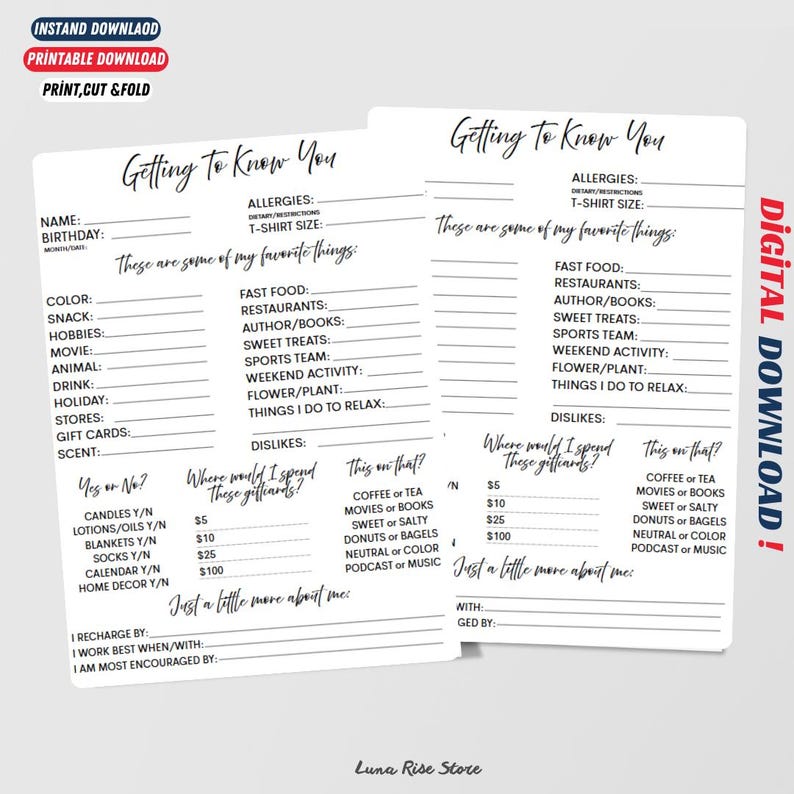 INSTAND DOWNLAOD
PRİNTABLE DOWNLOAD
PRİNT,CUT &FOLD
Getting To Know You
NAME:
BIRTHDAY:
MONTH/DATE:
ALLERGIES:
DIETARY/RESTRICTIONS
T-SHIRT SIZE:
These are some of my favorite things:
COLOR:
SNACK:
HOBBIES:
MOVIE:
ANIMAL:
DRINK:
HOLIDAY:
STORES:
GIFT CARDS:
SCENT:
FAST FOOD:
RESTAURANTS:
AUTHOR/BOOKS:
SWEET TREATS:
SPORTS TEAM:
WEEKEND ACTIVITY:
FLOWER/PLANT:
THINGS I DO TO RELAX:
DISLIKES:
Yes or No?
CANDLES Y/N
LOTIONS/OILS Y/N
BLANKETS Y/N
SOCKS Y/N
CALENDAR Y/N
HOME DECOR Y/N
Where would I spend
These giftcards?
$5
$10
$25
$100
This on that?
COFFEE or TEA
MOVIES or BOOKS
SWEET or SALTY
DONUTS or BAGELS
NEUTRAL or COLOR
PODCAST or MUSIC
Just a little more about me:
I RECHARGE BY:
I WORK BEST WHEN/WITH:
I AM MOST ENCOURAGED BY:
Getting To Know You
ALLERGIES:
DIETARY/RESTRICTIONS
T-SHIRT SIZE:
These are some of my favorite things:
FAST FOOD:
RESTAURANTS:
AUTHOR/BOOKS:
SWEET TREATS:
SPORTS TEAM:
WEEKEND ACTIVITY:
FLOWER/PLANT:
THINGS I DO TO RELAX:
DISLIKES:
Y/N
Where would I spend
These giftcards?
$5
$10
$25
$100
This on that?
COFFEE or TEA
MOVIES or BOOKS
SWEET or SALTY
DONUTS or BAGELS
NEUTRAL or COLOR
PODCAST or MUSIC
Just a little more about me:
WITH:
GED BY:
DİGİTAL DOWNLOAD !
Luna Rise Store